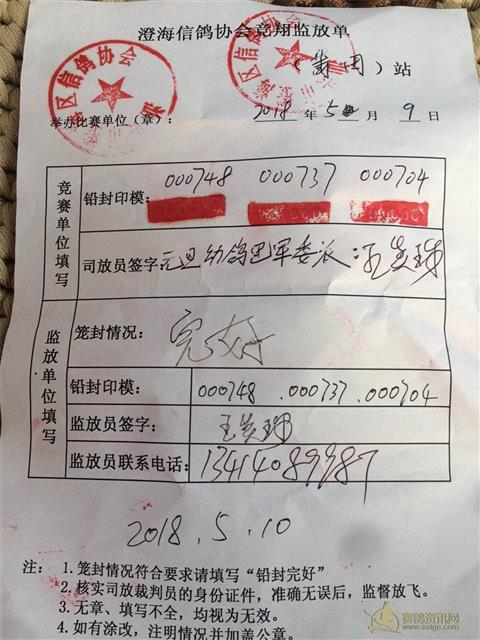 澄海信鸽协会竞翔监放单
(莆田)站
区信鸽协会
举办比赛单位(章): 2018年5月9日
竞赛单位填写
铅封印模: 000748 000737 000704
司放员签字 元旦幼鸽冠军委派:王英珠
监放单位填写
笼封情况: 完好
铅封印模: 000748 .000737 .000704
监放员签字: 王英珠
监放员联系电话: 13414089987
2018.5.10
注: 1.笼封情况符合要求请填写“铅封完好”
2.核实司放裁判员的身份证件,准确无误后,监督放飞。
3.无章、填写不全,均视为无效。
4.如有涂改,注明情况并加盖公章。
赛鸽资讯网
www.saige.com